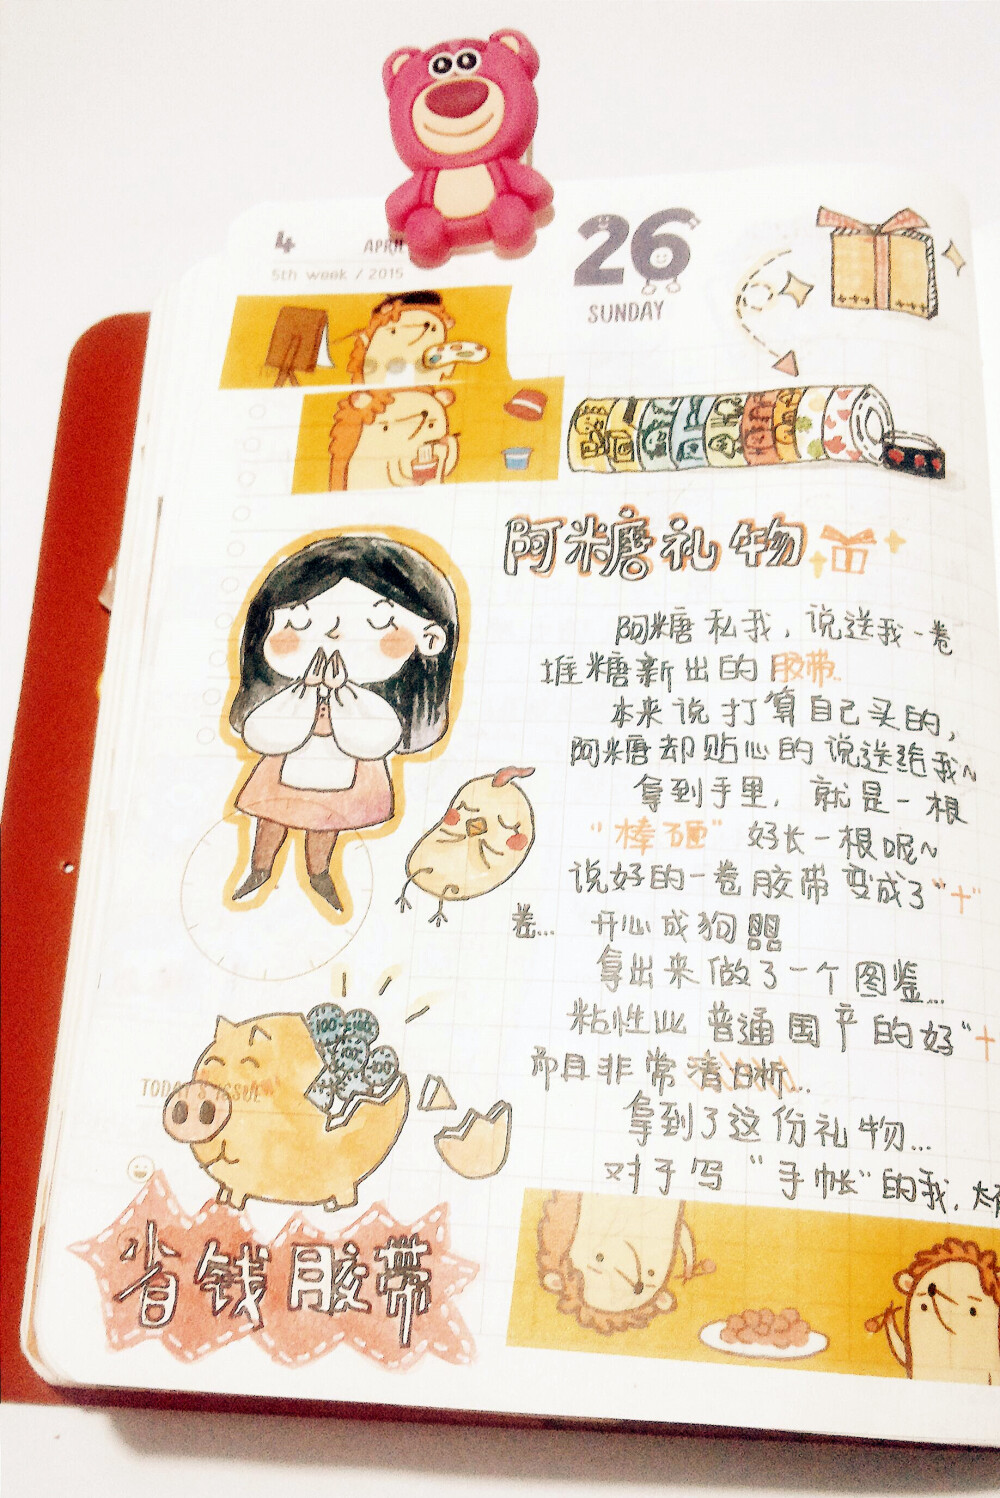 4 APRIL
5th week / 2015
26
SUNDAY
阿米唐礼物
阿糖私我，说送我一卷
堆糖新出的胶带..
本来说打算自己买的，
阿糖却贴心的说送给我~
拿到手里，就是一根
“棒砸” 好长一根呢~
说好的一卷胶带变成了“十”
卷... 开心成狗
拿出来做了一个图鉴...
粘性比普通国产的好“十
而且非常清晰...
拿到了这份礼物...
对于写“手帐”的我，
100 100
100
100
TODAY'S ISSUE
省钱胶带